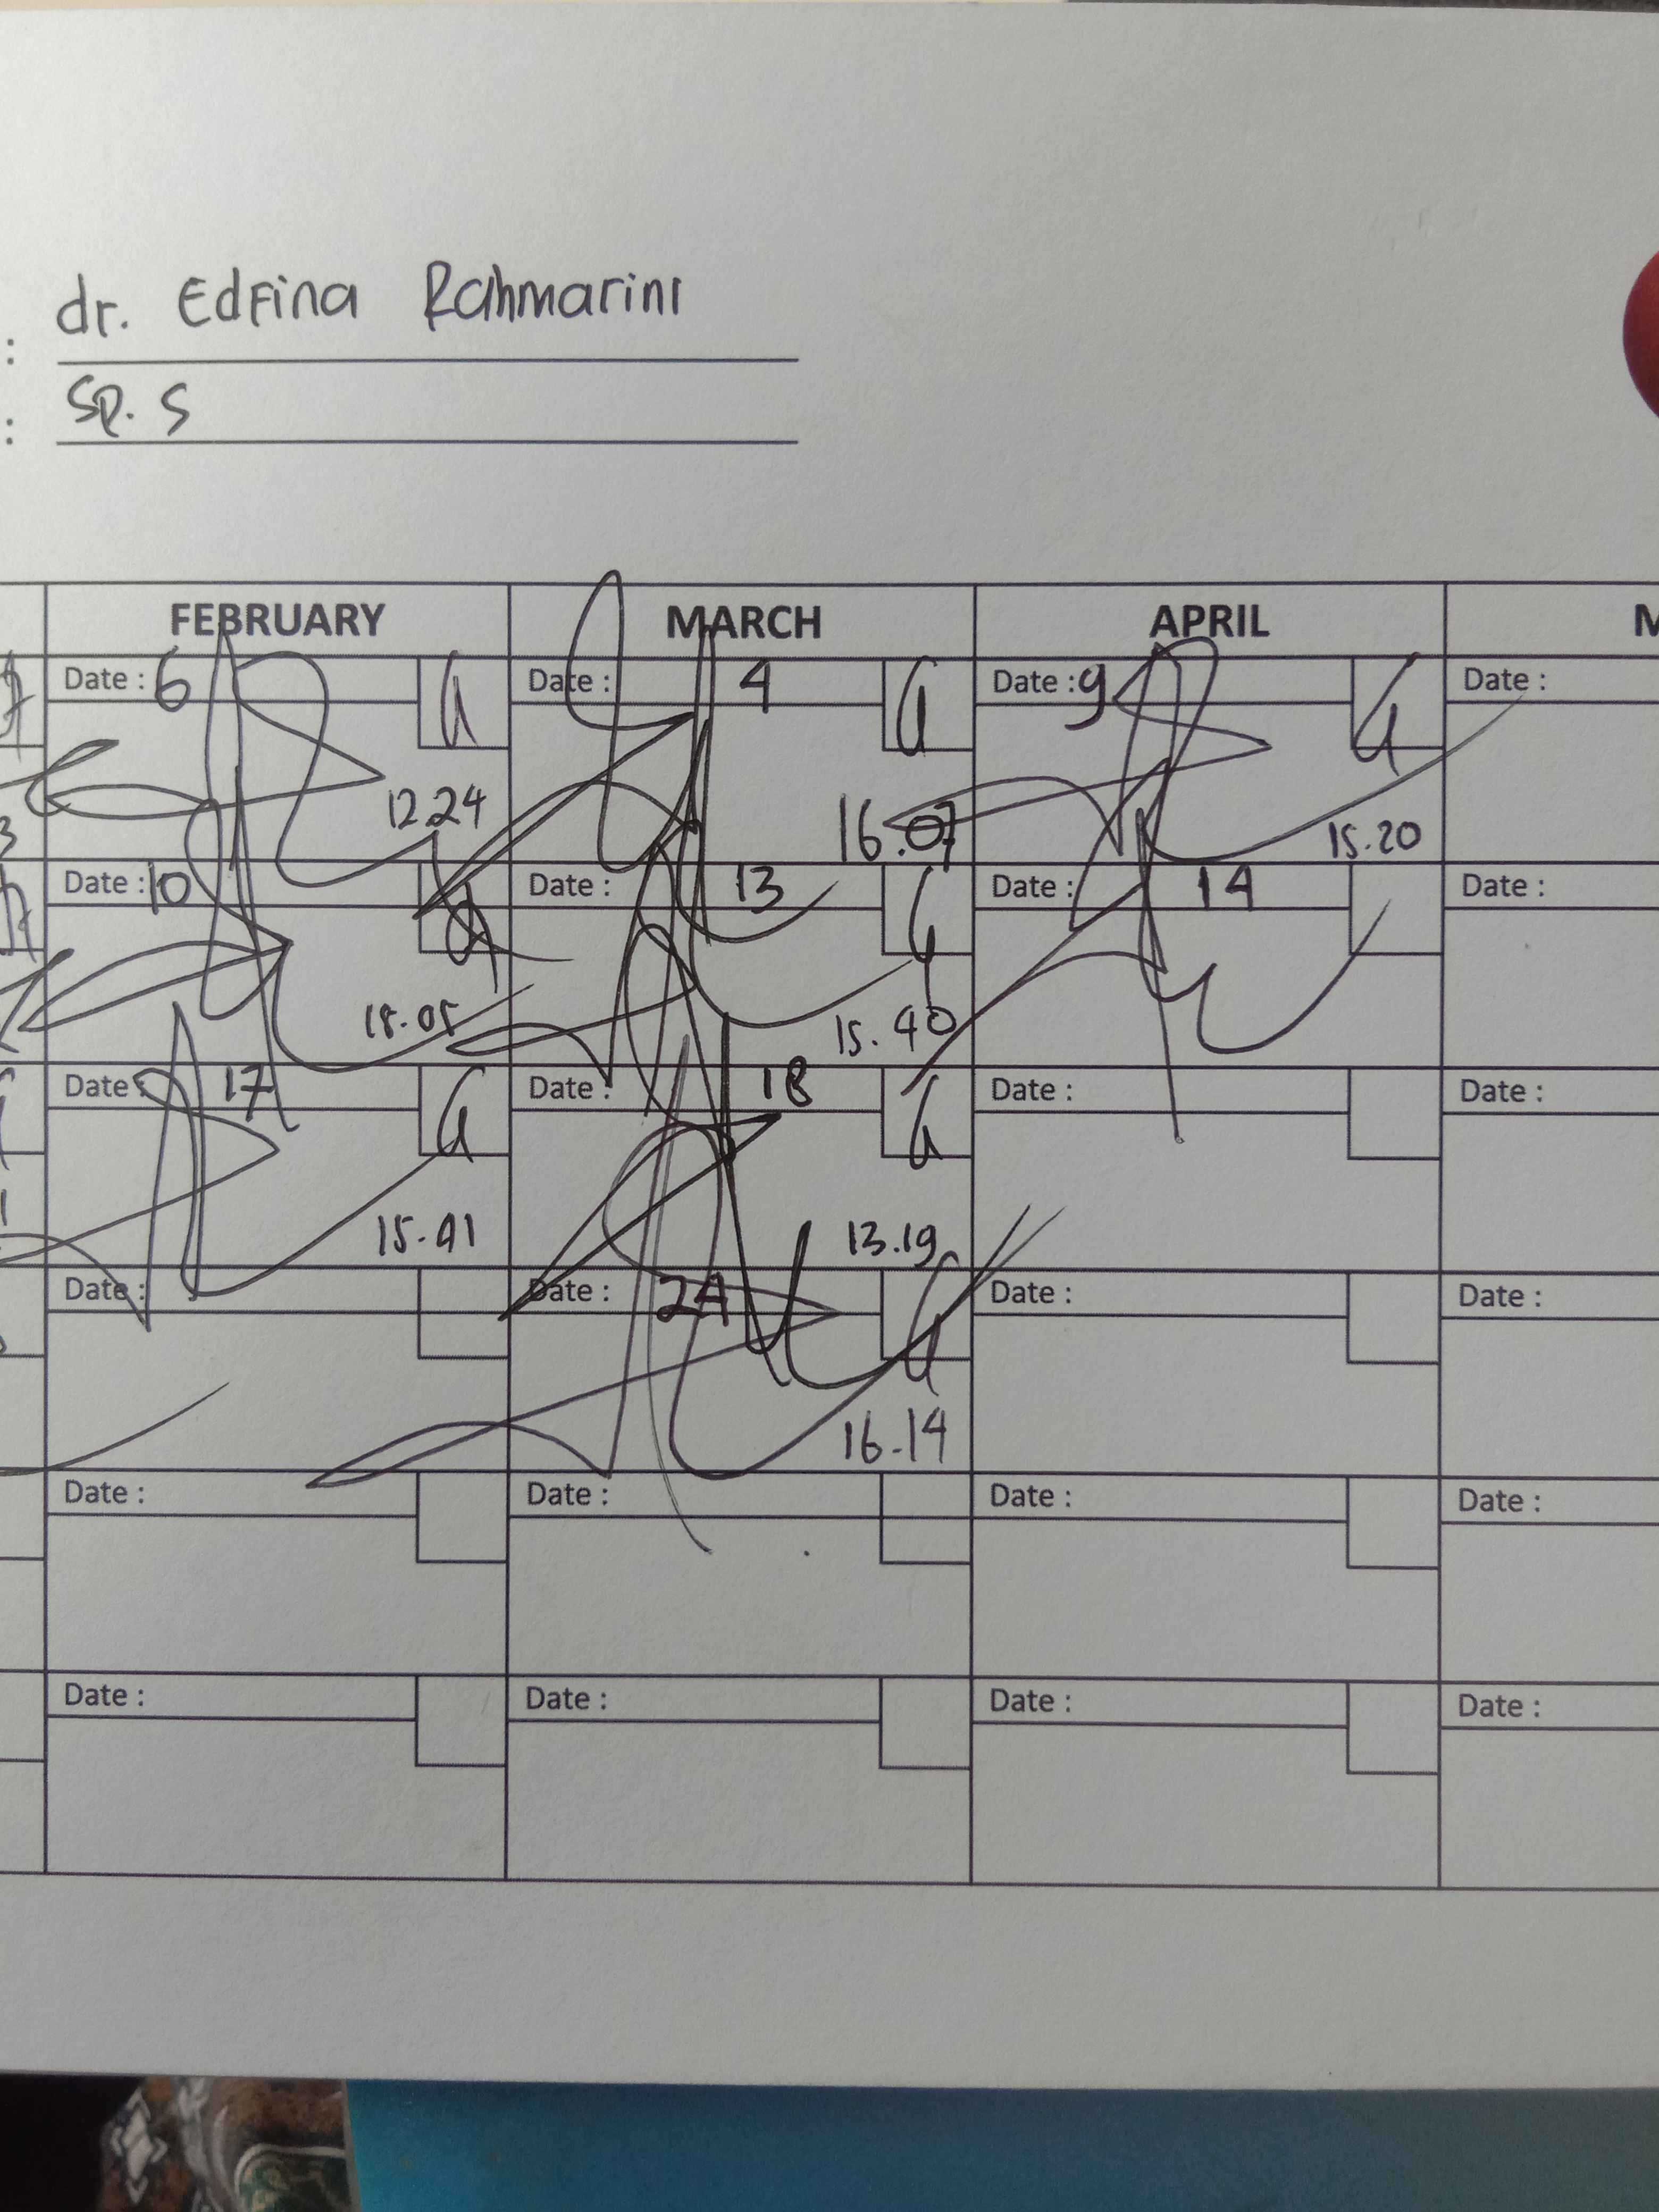 : dr. Edfina Rahmarini
: Sp. S
FEBRUARY MARCH APRIL
Date : 6 Date : 4 Date : 9 Date :
12.24 16.07 15.20
Date : 10 Date : 13 Date : 14 Date :
15.40
Date : 17 Date : 18 Date : Date :
15.41 13.19
Date : Date : 24 Date : Date :
16.14
Date : Date : Date : Date :
Date : Date : Date : Date :